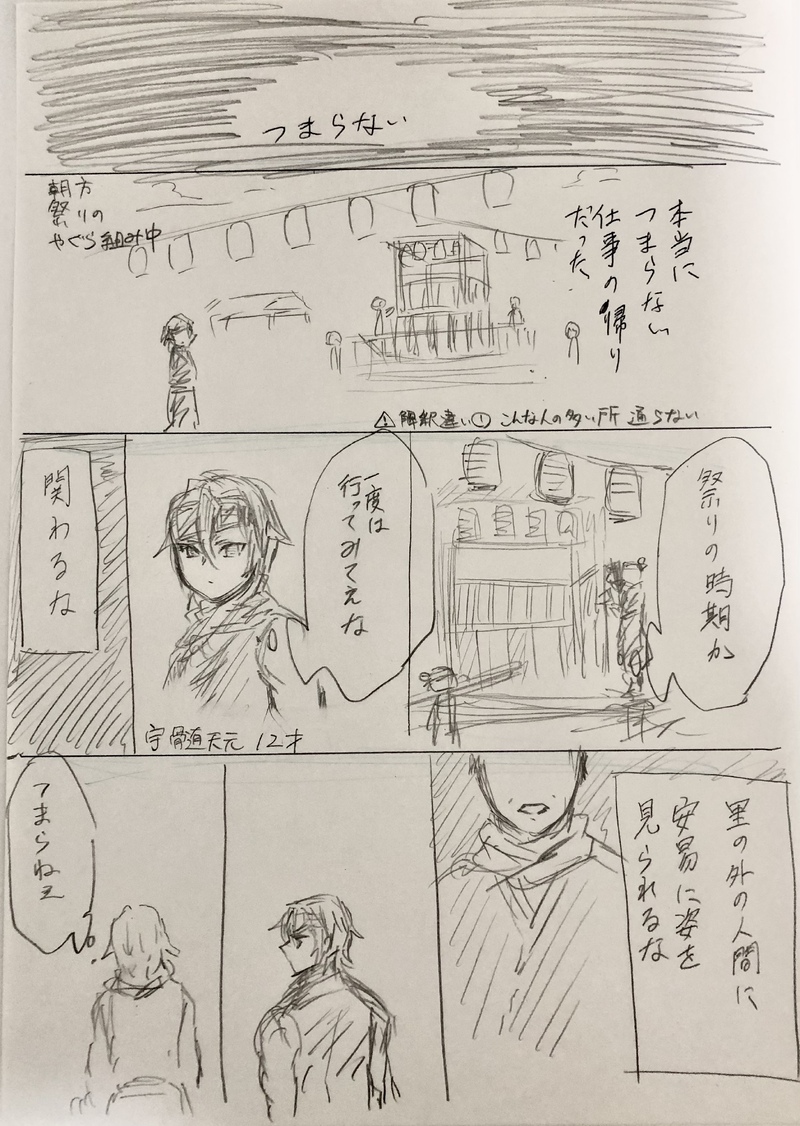 つまらない
本当に
つまらない
仕事の帰り
だった
朝方
祭りの
やぐら組み中
⚠ 解釈違い① こんな人の多い所 通らない
祭りの時期か
一度は
行ってみてえな
宇髄天元 12才
関わるな
里の外の人間に
安易に姿を
見られるな
つまらねェ